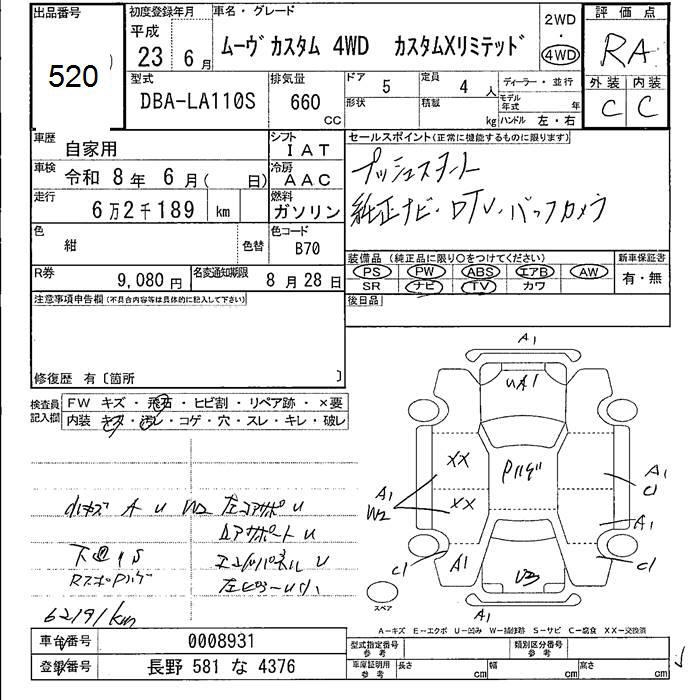 出品番号
520
初度登録年月
平成
23 6月
車名・グレード
ムーヴカスタム 4WD カスタムXリミテッド
2WD
・
4WD
評価点
RA
外装 内装
C C
型式
DBA-LA110S
排気量
660
CC
ドア 5
形状
定員 4人
積載 kg
ディーラー・並行
モデル年式 年
ハンドル 左・右
車歴 自家用
シフト IAT
車検 令和 8年 6月( 日)
冷房 AAC
走行 6万2千189 km
燃料 ガソリン
色 紺 色替
色コード B70
R券 9,080円
名変通知期限 8月28日
セールスポイント(正常に機能するものに限ります)
プッシュスタート
純正ナビ・DTV・バックカメラ
装備品(純正品に限り○をつけてください)
PS PW ABS エアB AW
SR ナビ TV カワ
新車保証書
有・無
後日品
注意事項申告欄(不具合内容等は具体的に記入して下さい)
修復歴 有〔箇所 〕
検査員記入欄
FW キズ・飛石・ヒビ割・リペア跡・×要
内装 キズ・汚レ・コゲ・穴・スレ・キレ・破レ
小キズ A U W2 左コアサポ U
ロアサポート U
下廻りS
エンドパネル U
62191km
A1
UA1
XX
XX
Pハゲ
A1
W2
A1
C1
A1
C1
A1
C1
U3
A1
スペア
A-キズ E-エクボ U-凹み W-補修跡 S-サビ C-腐食 XX-交換済
車台番号 0008931
登録番号 長野 581 な 4376
型式指定番号 参考
類別区分番号 参考
車庫証明用 参考
長さ cm 幅 cm 高さ cm